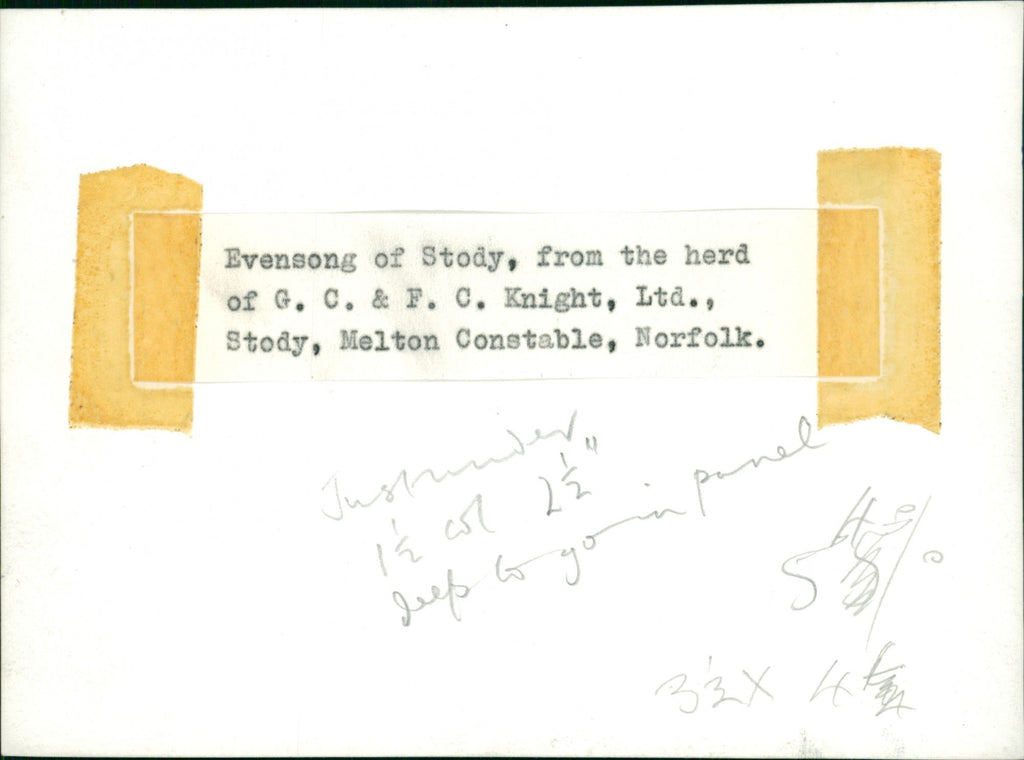 Evensong of Stody, from the herd
of G. C. & F. C. Knight, Ltd.,
Stody, Melton Constable, Norfolk.
Just under
1½ col 2½"
deep to go in panel
3½ X 4